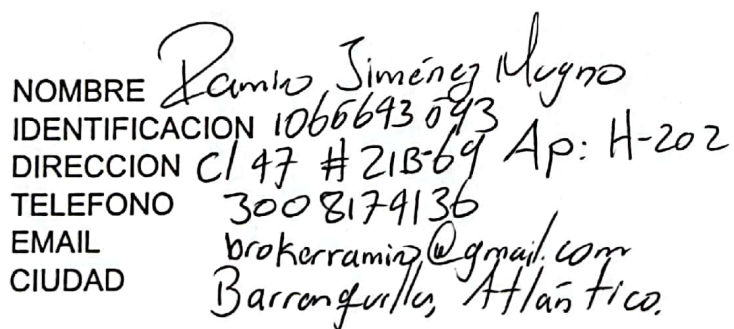 NOMBRE Ramiro Jiménez Mugno
IDENTIFICACION 1066643543
DIRECCION Cl 47 # 21B-69 Ap: H-202
TELEFONO 3008174136
EMAIL brokerramiro@gmail.com
CIUDAD Barranquilla, Atlántico.